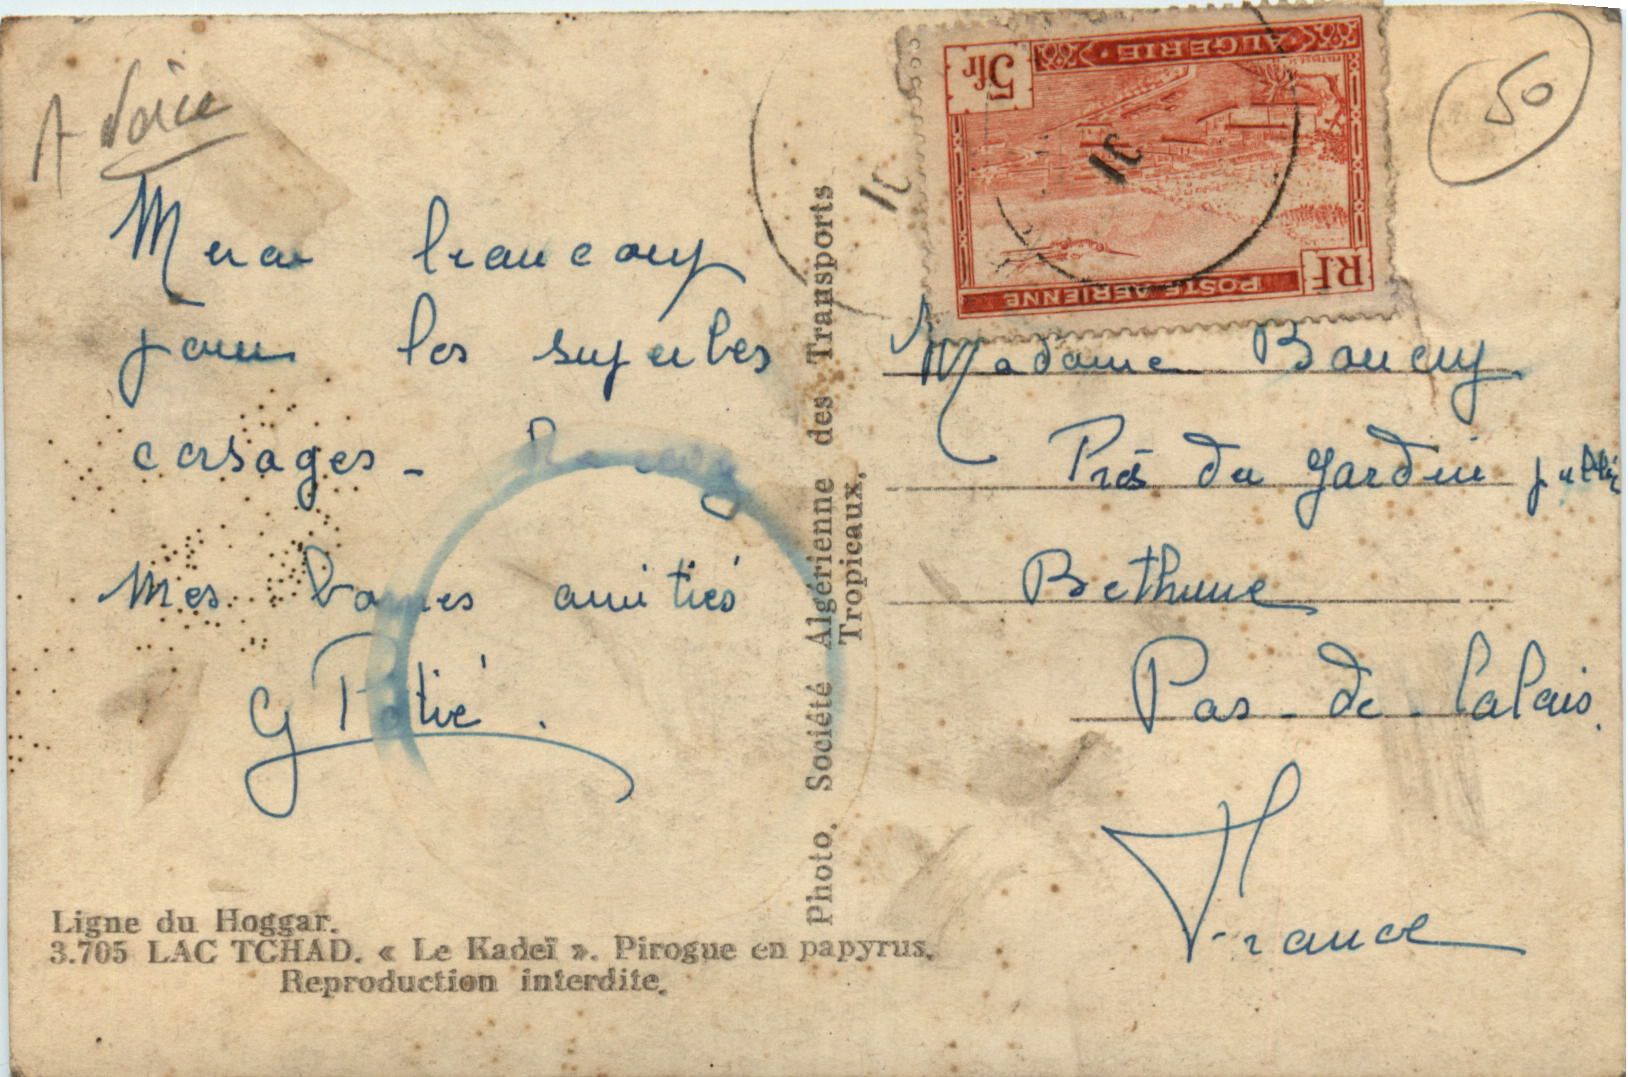 A Voir
50
ALGERIE
5fr
POSTE AERIENNE
RF
Merci beaucoup
pour les superbes
corsages -
Mes bonnes amitiés
G Potié.
Photo. Société Algérienne des Transports
Tropicaux.
Madame Boucry
Près du Jardin public
Bethune
Pas-de-Calais.
France
Ligne du Hoggar.
3.705 LAC TCHAD. « Le Kadeï ». Pirogue en papyrus.
Reproduction interdite.